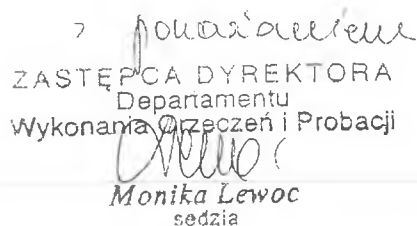 z poważaniem
ZASTĘPCA DYREKTORA
Departamentu
Wykonania Orzeczeń i Probacji
Monika Lewoc
sędzia